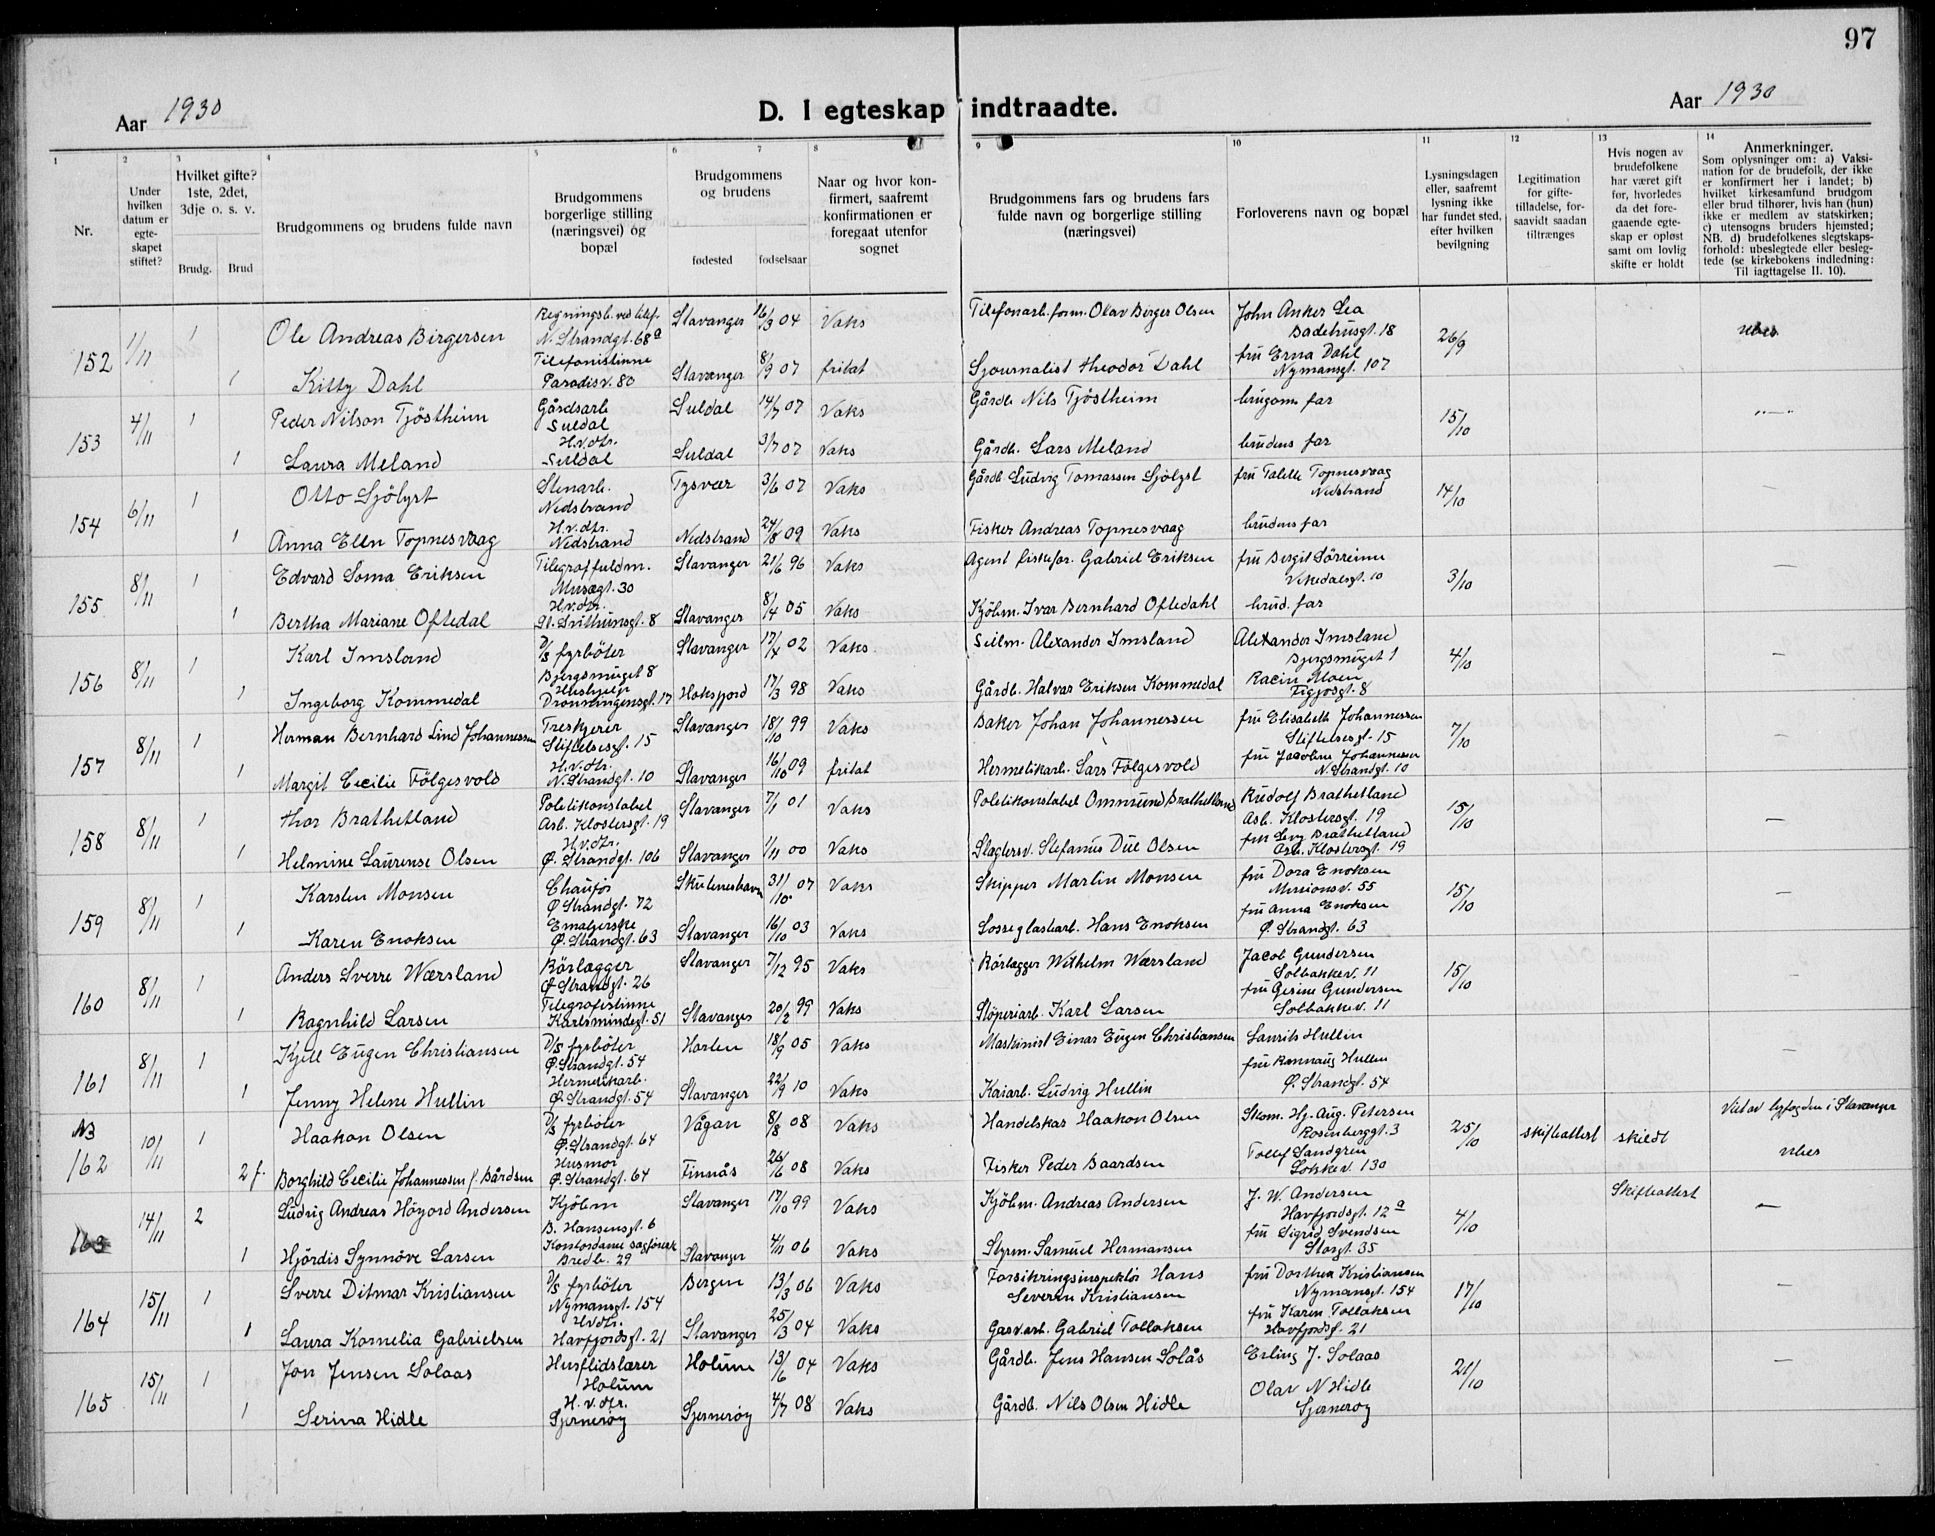 97
Aar 1930
D. I egteskap indtraadte.
Aar 1930
1 2 3 4 5 6 7 8 9 10 11 12 13 14
Nr.
Under hvilken datum er egte-skapet stiftet?
Hvilket gifte? 1ste, 2det, 3dje o. s. v.
Brudg. Brud
Brudgommens og brudens fulde navn
Brudgommens borgerlige stilling (næringsvei) og bopæl
Brudgommens og brudens
fødested fødselsaar
Naar og hvor kon-firmert, saafremt konfirmationen er foregaat utenfor sognet
Brudgommens fars og brudens fars fulde navn og borgerlige stilling (næringsvei)
Forloverens navn og bopæl
Lysningsdagen eller, saafremt lysning ikke har fundet sted, efter hvilken bevilgning
Legitimation for gifte-tilladelse, for-saavidt saadan tiltrænges
Hvis nogen av brudefolkene har været gift før, hvorledes da det fore-gaaende egte-skap er opløst samt om lovlig skifte er holdt
Anmerkninger.
Som oplysninger om: a) Vaksi-nation for de brudefolk, der ikke er konfirmert her i landet; b) hvilket kirkesamfund brudgom eller brud tilhører, hvis han (hun) ikke er medlem av statskirken; c) utensogns bruders hjemsted; NB. d) brudefolkenes slegtskaps-forhold: ubeslegtede eller besleg-tede (se kirkebokens indledning: Til iagttagelse II. 10).
152 1/11 1 Ole Andreas Birgersen Regningsb. ved telef. N. Strandgt. 68a Stavanger 16/3 04 Vaks Telefonarb. form. Olav Birger Olsen John Anker Lea Badehusgt. 18 26/9 ubes
1 Kitty Dahl Telefonistinne Paradisv. 80 Stavanger 8/9 07 fritat Sjournalist Theodor Dahl fru Erna Dahl Nymansgt. 107
153 4/11 1 Peder Nilson Tjöstheim Gårdsarb Suldal Suldal 14/7 07 Vaks Gårdb. Nils Tjöstheim brugoms far 15/10 -"-
1 Laura Meland H.v.dtr. Suldal Suldal 3/7 07 Vaks Gårdb. Lars Meland brudens far
154 6/11 1 Otto Sjölyst Stenarb. Nedstrand Tysvær 3/6 07 Vaks Gårdb Ludvig Tomassen Sjölyst fru Talette Topnesvaag Nedstrand 14/10 —
1 Anna Elen Topnesvaag H.v.dtr. Nedstrand Nedstrand 24/8 09 Vaks Fisker Andreas Topnesvaag brudens far
155 8/11 1 Edvard Soma Eriksen Telegraffuldm. Musægt. 30 Stavanger 21/6 96 Vaks Agent fiskefor. Gabriel Eriksen fru Bergit Sörreime Vikedalsgt. 10 3/10 —
1 Bertha Mariane Oftedal H.v.dtr. 8 Stavanger 8/4 05 Vaks Kjöbm. Ivar Bernhard Oftedahl brud. far
156 8/11 1 Karl Imsland D/S fyrböter Bjergsmuget 8 Stavanger 17/4 02 Vaks Seilm. Alexander Imsland Alexander Imsland Bjergsmuget 1 4/10 —
1 Ingeborg Kommedal Hushjelp Dronningensgt. 17 Höksfjord 17/3 98 Vaks Gårdb. Halvar Eriksen Kommedal Racin Moen 8
157 8/11 1 Herman Bernhard Lind Johannessen Treskjerer Stiftelsesgt. 15 Stavanger 18/10 99 Vaks Baker Johan Johannessen fru Elisabeth Johannessen Stiftelsesgt. 15 7/10 —
1 Margit Cecilie Fölgesvold H.v.dtr. N. Strandgt. 10 Stavanger 16/10 09 fritat Hermetikarb. Lars Fölgesvold fru Jacobine Johannessen N. Strandgt. 10
158 8/11 1 Thor Brathetland Politikonstabel Asb. Klostersgt. 19 Stavanger 7/1 01 Vaks Politikonstabel Ommund Brathetland Rudolf Brathetland Asb. Klostersgt. 19 15/10 —
1 Helmine Laurense Olsen H.v.dtr. Ø. Strandgt. 106 Stavanger 1/11 00 Vaks Slagtersv. Stefanus Due Olsen fru Brathetland Asb. Klostersgt. 19
159 8/11 1 Karsten Monsen Chauför Ø Strandgt. 72 Skudeneshavn 31/10 07 Vaks Skipper Martin Monsen fru Dora Enoksen Missionsv. 55 15/10 —
1 Karen Enoksen Emaljerske Ø. Strandgt. 63 Stavanger 16/10 03 Vaks Losseglasbarb. Hans Enoksen fru Anna Enoksen Ø. Strandgt. 63
160 8/11 1 Anders Sverre Wærsland Rörlægger Ø Strandgt. 26 Stavanger 7/12 95 Vaks Rörlægger Wilhelm Wærsland Jacob Gundersen Solbakkev. 11 15/10 —
1 Ragnhild Larsen Telegrafistinne Karlsmindegt. 51 Stavanger 20/2 99 Vaks Stöperiarb. Karl Larsen fru Gesine Gundersen Solbakkev. 11
161 8/11 1 Kjell Eugen Christiansen D/S fyrböter Ø. Strandgt. 54 Horten 18/9 05 Vaks Maskinist Einar Eugen Christiansen Laurits Hullin —
1 Jenny Helene Hullin Hermetikarb. Ø. Strandgt. 54 Stavanger 22/9 10 Vaks Kaiarb. Ludvig Hullin fru Rannaug Hullin Ø. Strandgt. 54
162 10/11 1 Haakon Olsen D/S fyrböter Ø. Strandgt. 64 Vågan 8/8 08 Vaks Handelskar Haakon Olsen Skom. Hj. Aug. Petersen Rosenberggt. 3 25/10 skifteattest skildt Viet av byfogden i Stavanger
2 f. Borghild Cecilie Johannessen f. Bårdsen Husmor Ø. Strandgt. 64 Finnås 26/6 08 Vaks Fisker Peder Baardsen Tollef Sandgren Lokkev. 130 ubes
163 14/11 2 Ludvig Andreas Höyord Andersen Kjöbm B. Hansensgt. 6 Stavanger 17/10 99 Vaks Kjöbm. Andreas Andersen J. W. Andersen Havfjordsgt. 12a 4/10 Skifteattest —
1 Hjördis Synnöve Larsen Kontordame sagförerk. Bredb. 29 Stavanger 4/11 06 Vaks Styrm. Samuel Hermansen fru Sigrid Svendsen Storgt. 35
164 15/11 1 Sverre Ditmar Kristiansen D/S fyrböter Nymansgt. 154 Bergen 13/3 06 Vaks Forsikringsinspektör Hans Severin Kristiansen fru Dorthea Kristiansen Nymansgt. 154 17/10 —
1 Laura Kornelia Gabrielsen H.v.dtr. Havfjordsgt. 21 Stavanger 25/3 04 Vaks Gasv.arb. Gabriel Tollaksen fru Karen Tollaksen Havfjordsgt. 21
165 15/11 1 Jon Jensen Solaas Husflidslærer Holum Holum 13/6 04 Vaks Gårdb. Jens Hansen Solås Erling J. Solaas 21/10 —
1 Serina Hidle H.v.dtr. Sjernerøy Sjernerøy 4/7 08 Vaks Gårdb. Nils Olsen Hidle Olav N Hidle Sjernerøy